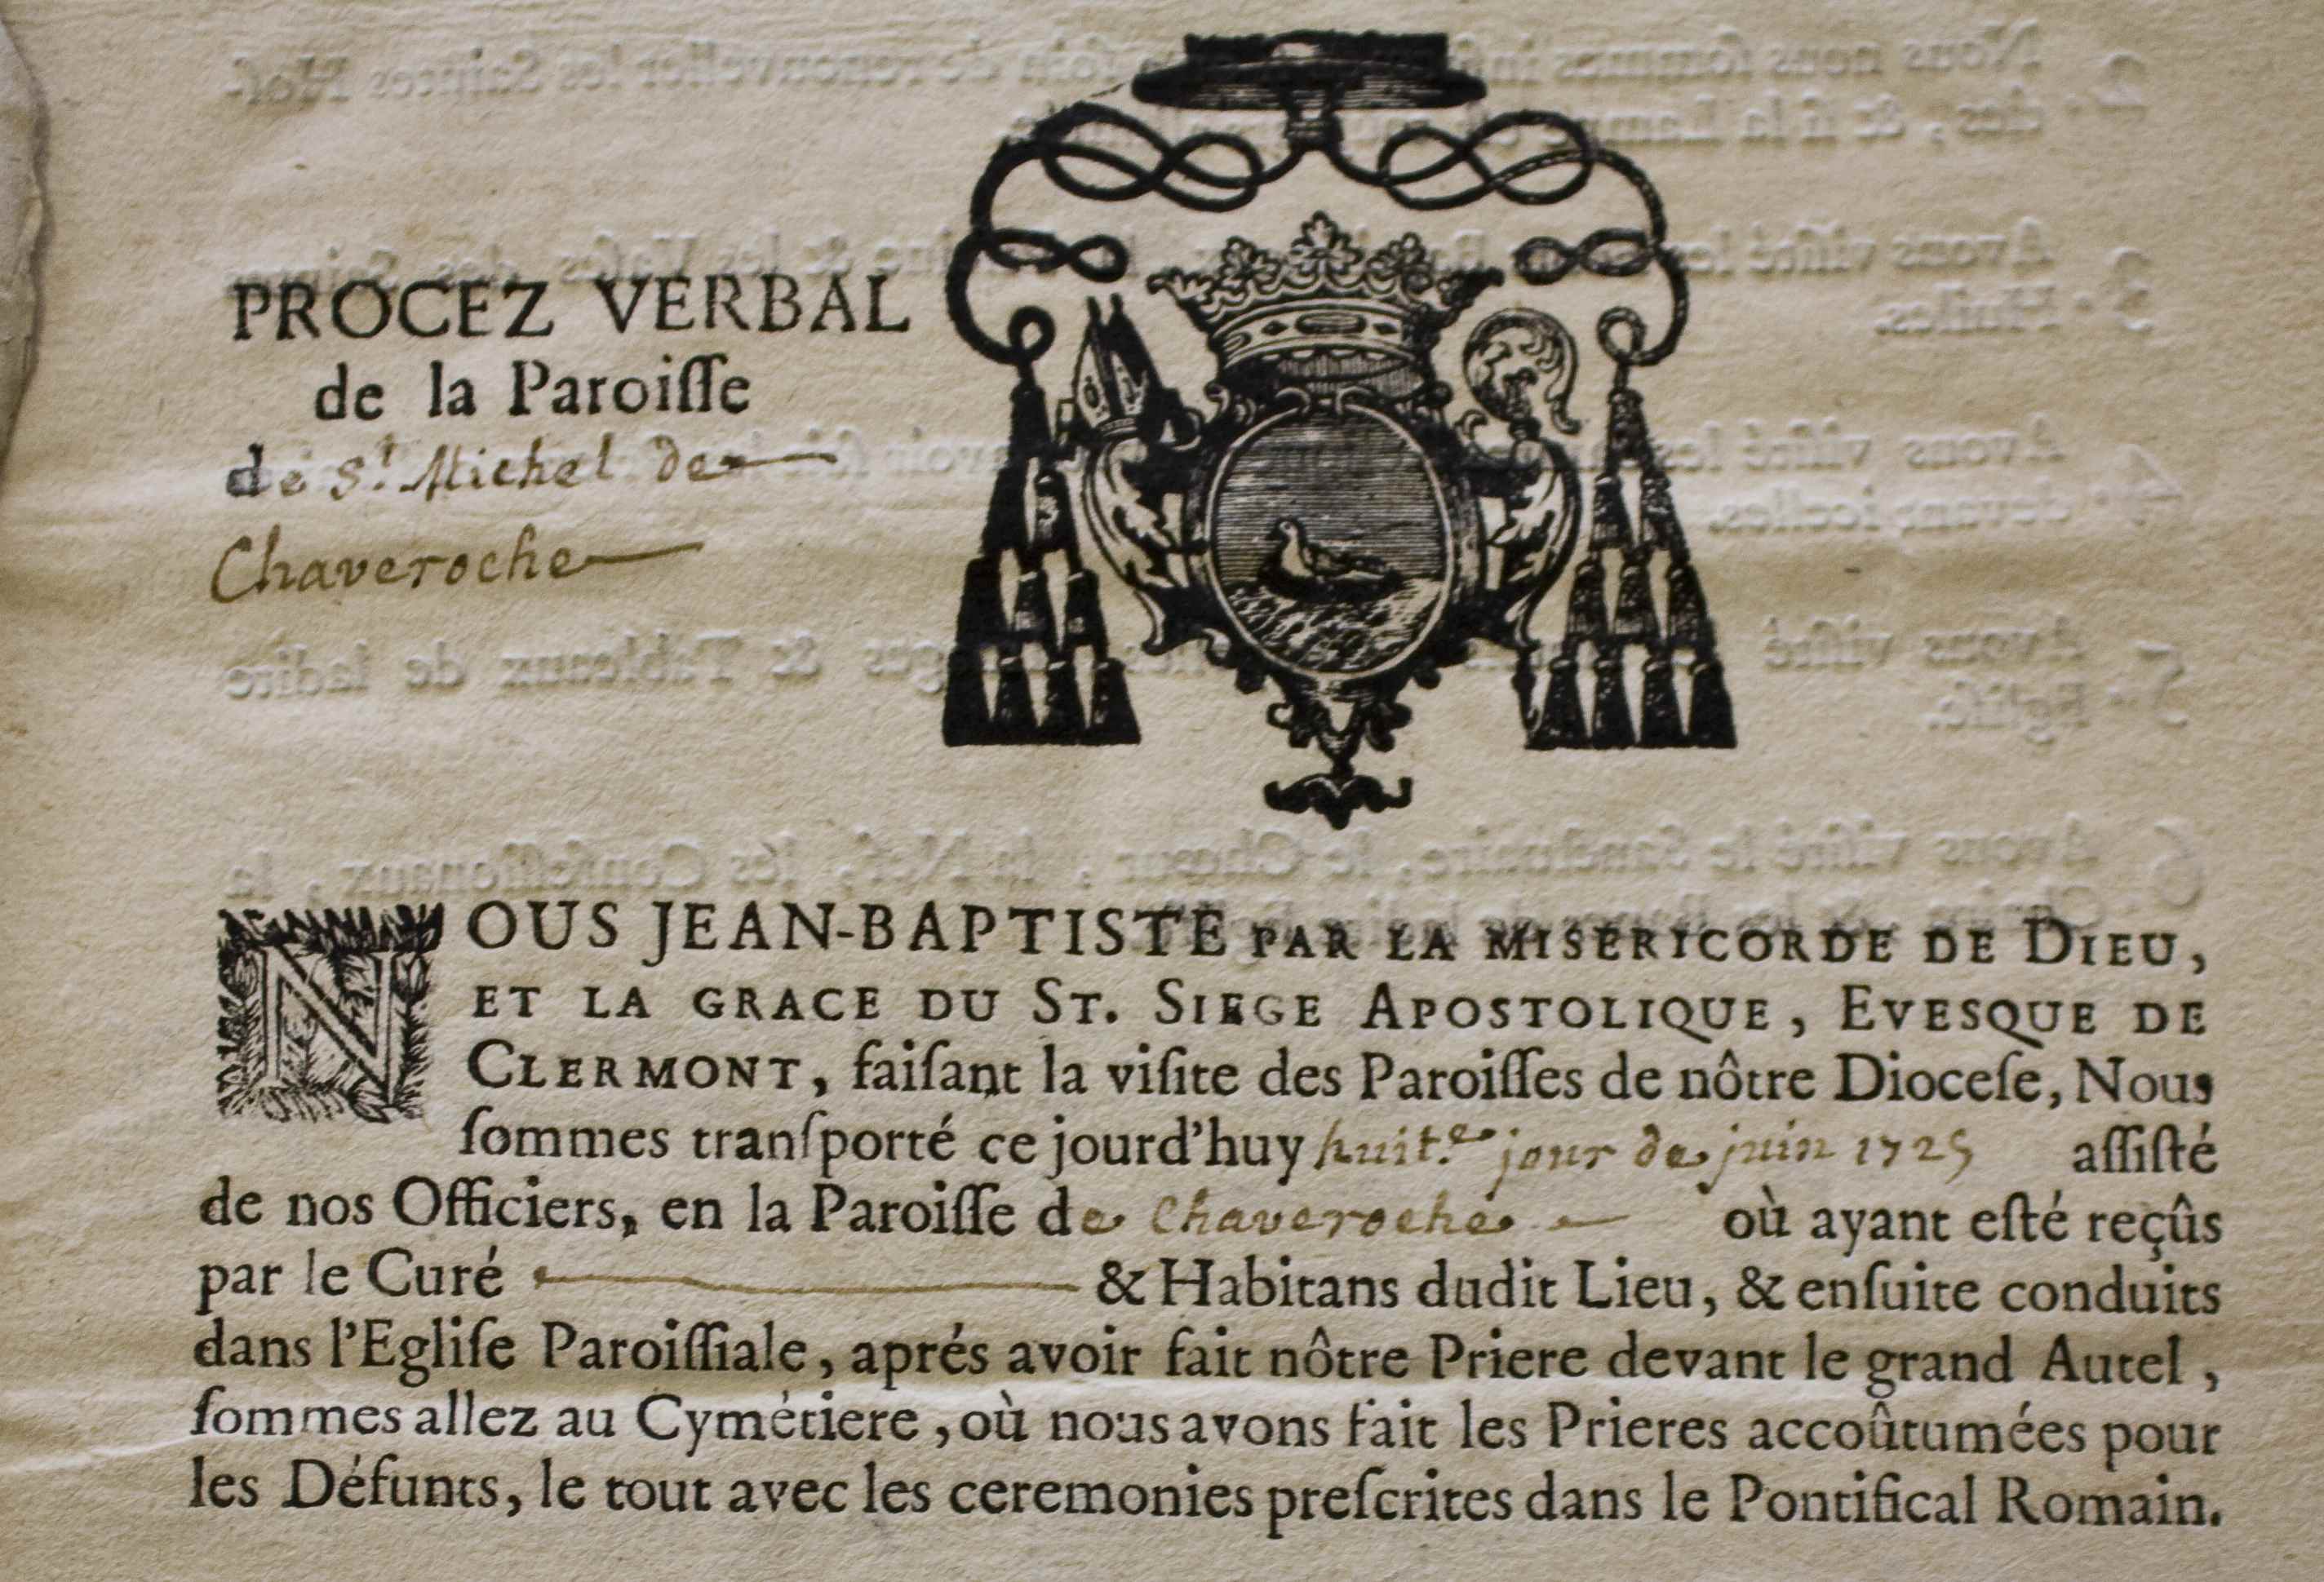 PROCEZ VERBAL
de la Paroiſſe
de St. Michel de
Chaveroche
NOUS JEAN-BAPTISTE PAR LA MISERICORDE DE DIEU,
ET LA GRACE DU ST. SIEGE APOSTOLIQUE, EVESQUE DE
CLERMONT, faiſant la viſite des Paroiſſes de nôtre Dioceſe, Nous
ſommes tranſporté ce jourd'huy huit.e jour de juin 1725 aſſiſté
de nos Officiers, en la Paroiſſe de Chaveroche où ayant eſté reçûs
par le Curé & Habitans dudit Lieu, & enſuite conduits
dans l'Egliſe Paroiſſiale, aprés avoir fait nôtre Priere devant le grand Autel,
ſommes allez au Cymétiere, où nous avons fait les Prieres accoûtumées pour
les Défunts, le tout avec les ceremonies preſcrites dans le Pontifical Romain.